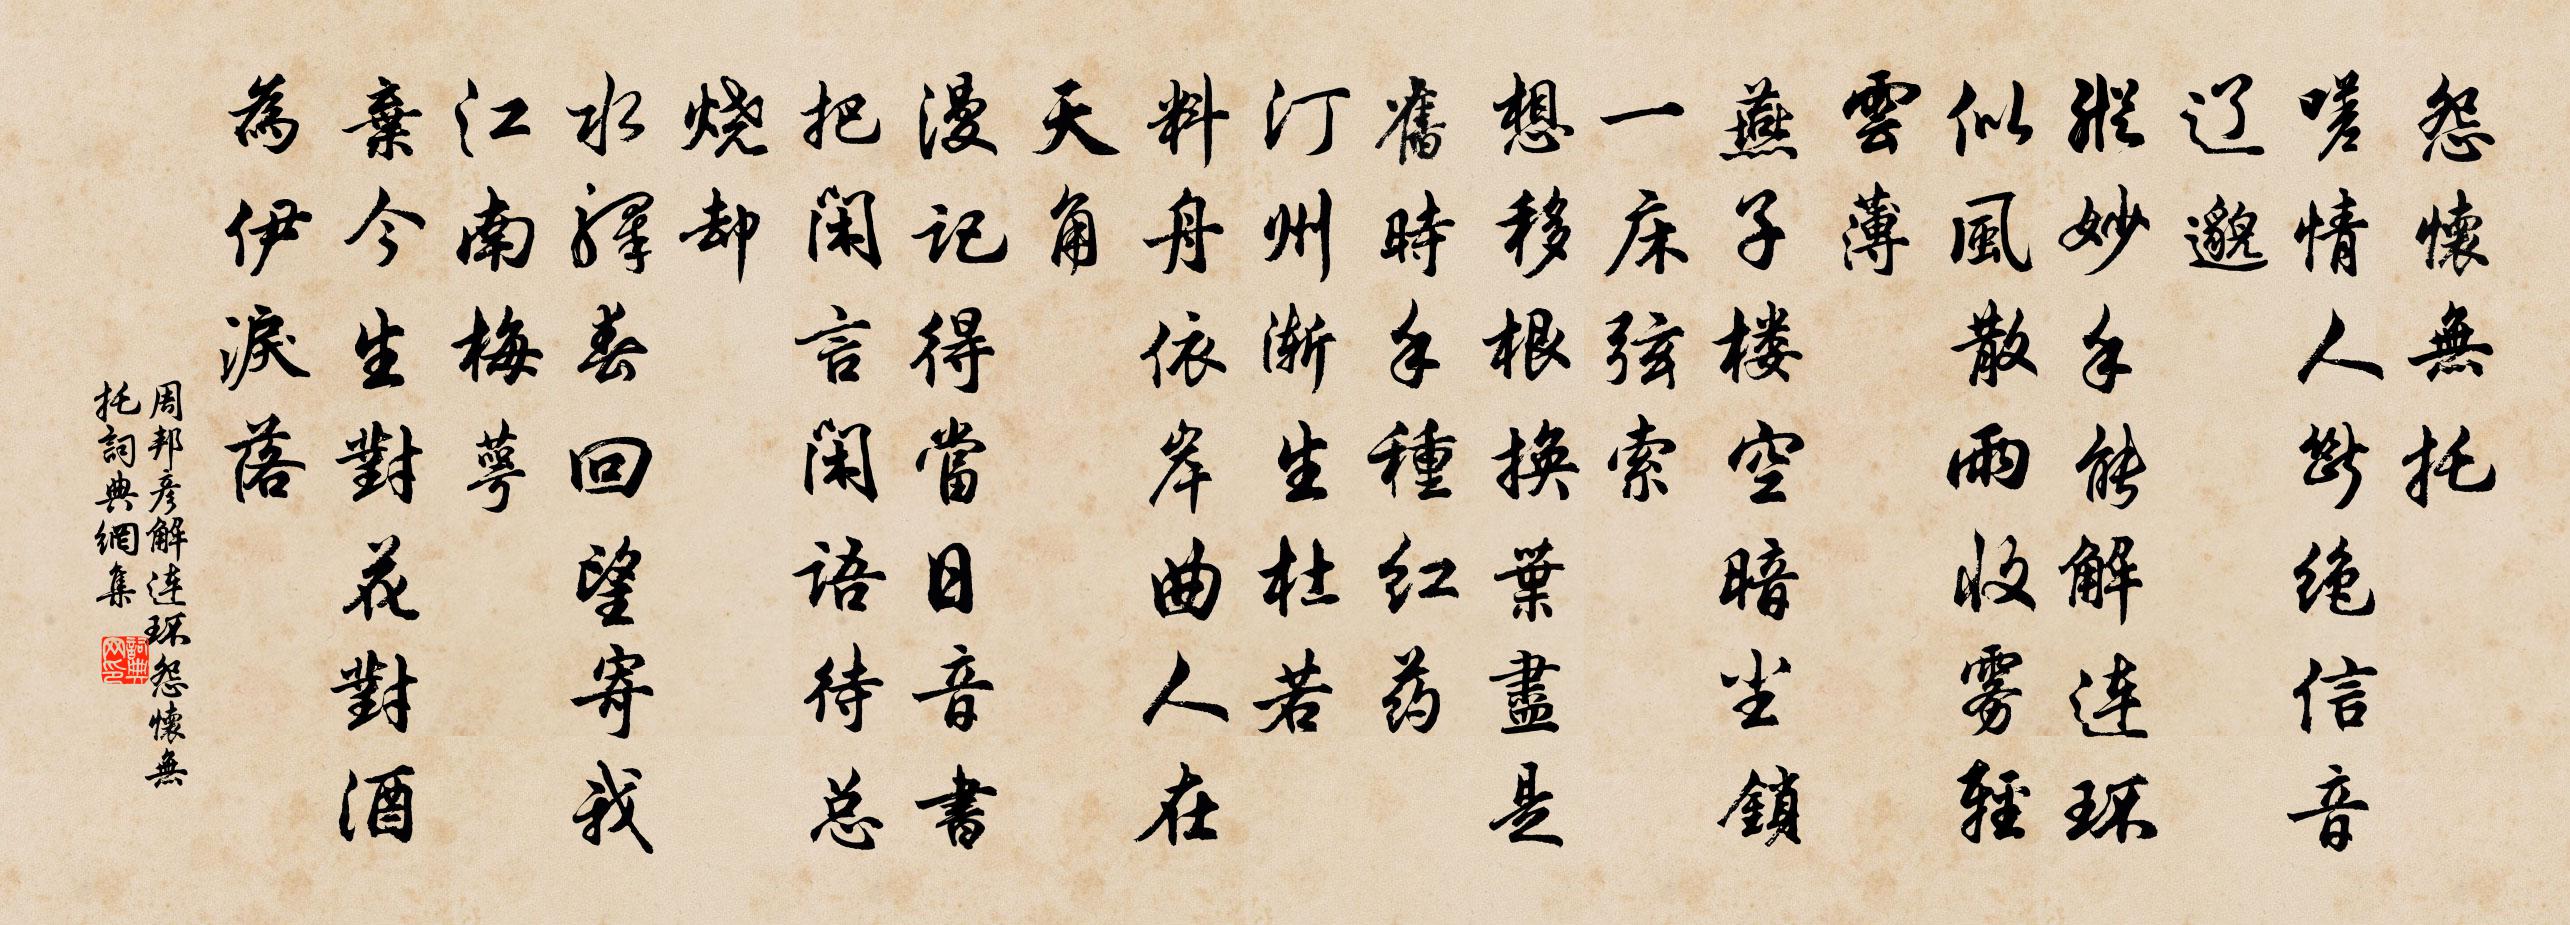 怨懷無托
嗟情人斷绝信音
辽邈
縱妙手能解连环
似風散雨收雾輕
雲薄
燕子楼空暗尘鎖
一床弦索
想移根換葉盡是
舊時手種红药
汀州渐生杜若
料舟依岸曲人在
天角
漫记得當日音書
把閑言閑語待总
烧却
水驛春回望寄我
江南梅萼
棄今生對花對酒
為伊淚落
周邦彦解连环怨懷無
托詞典網集
詞典
网印